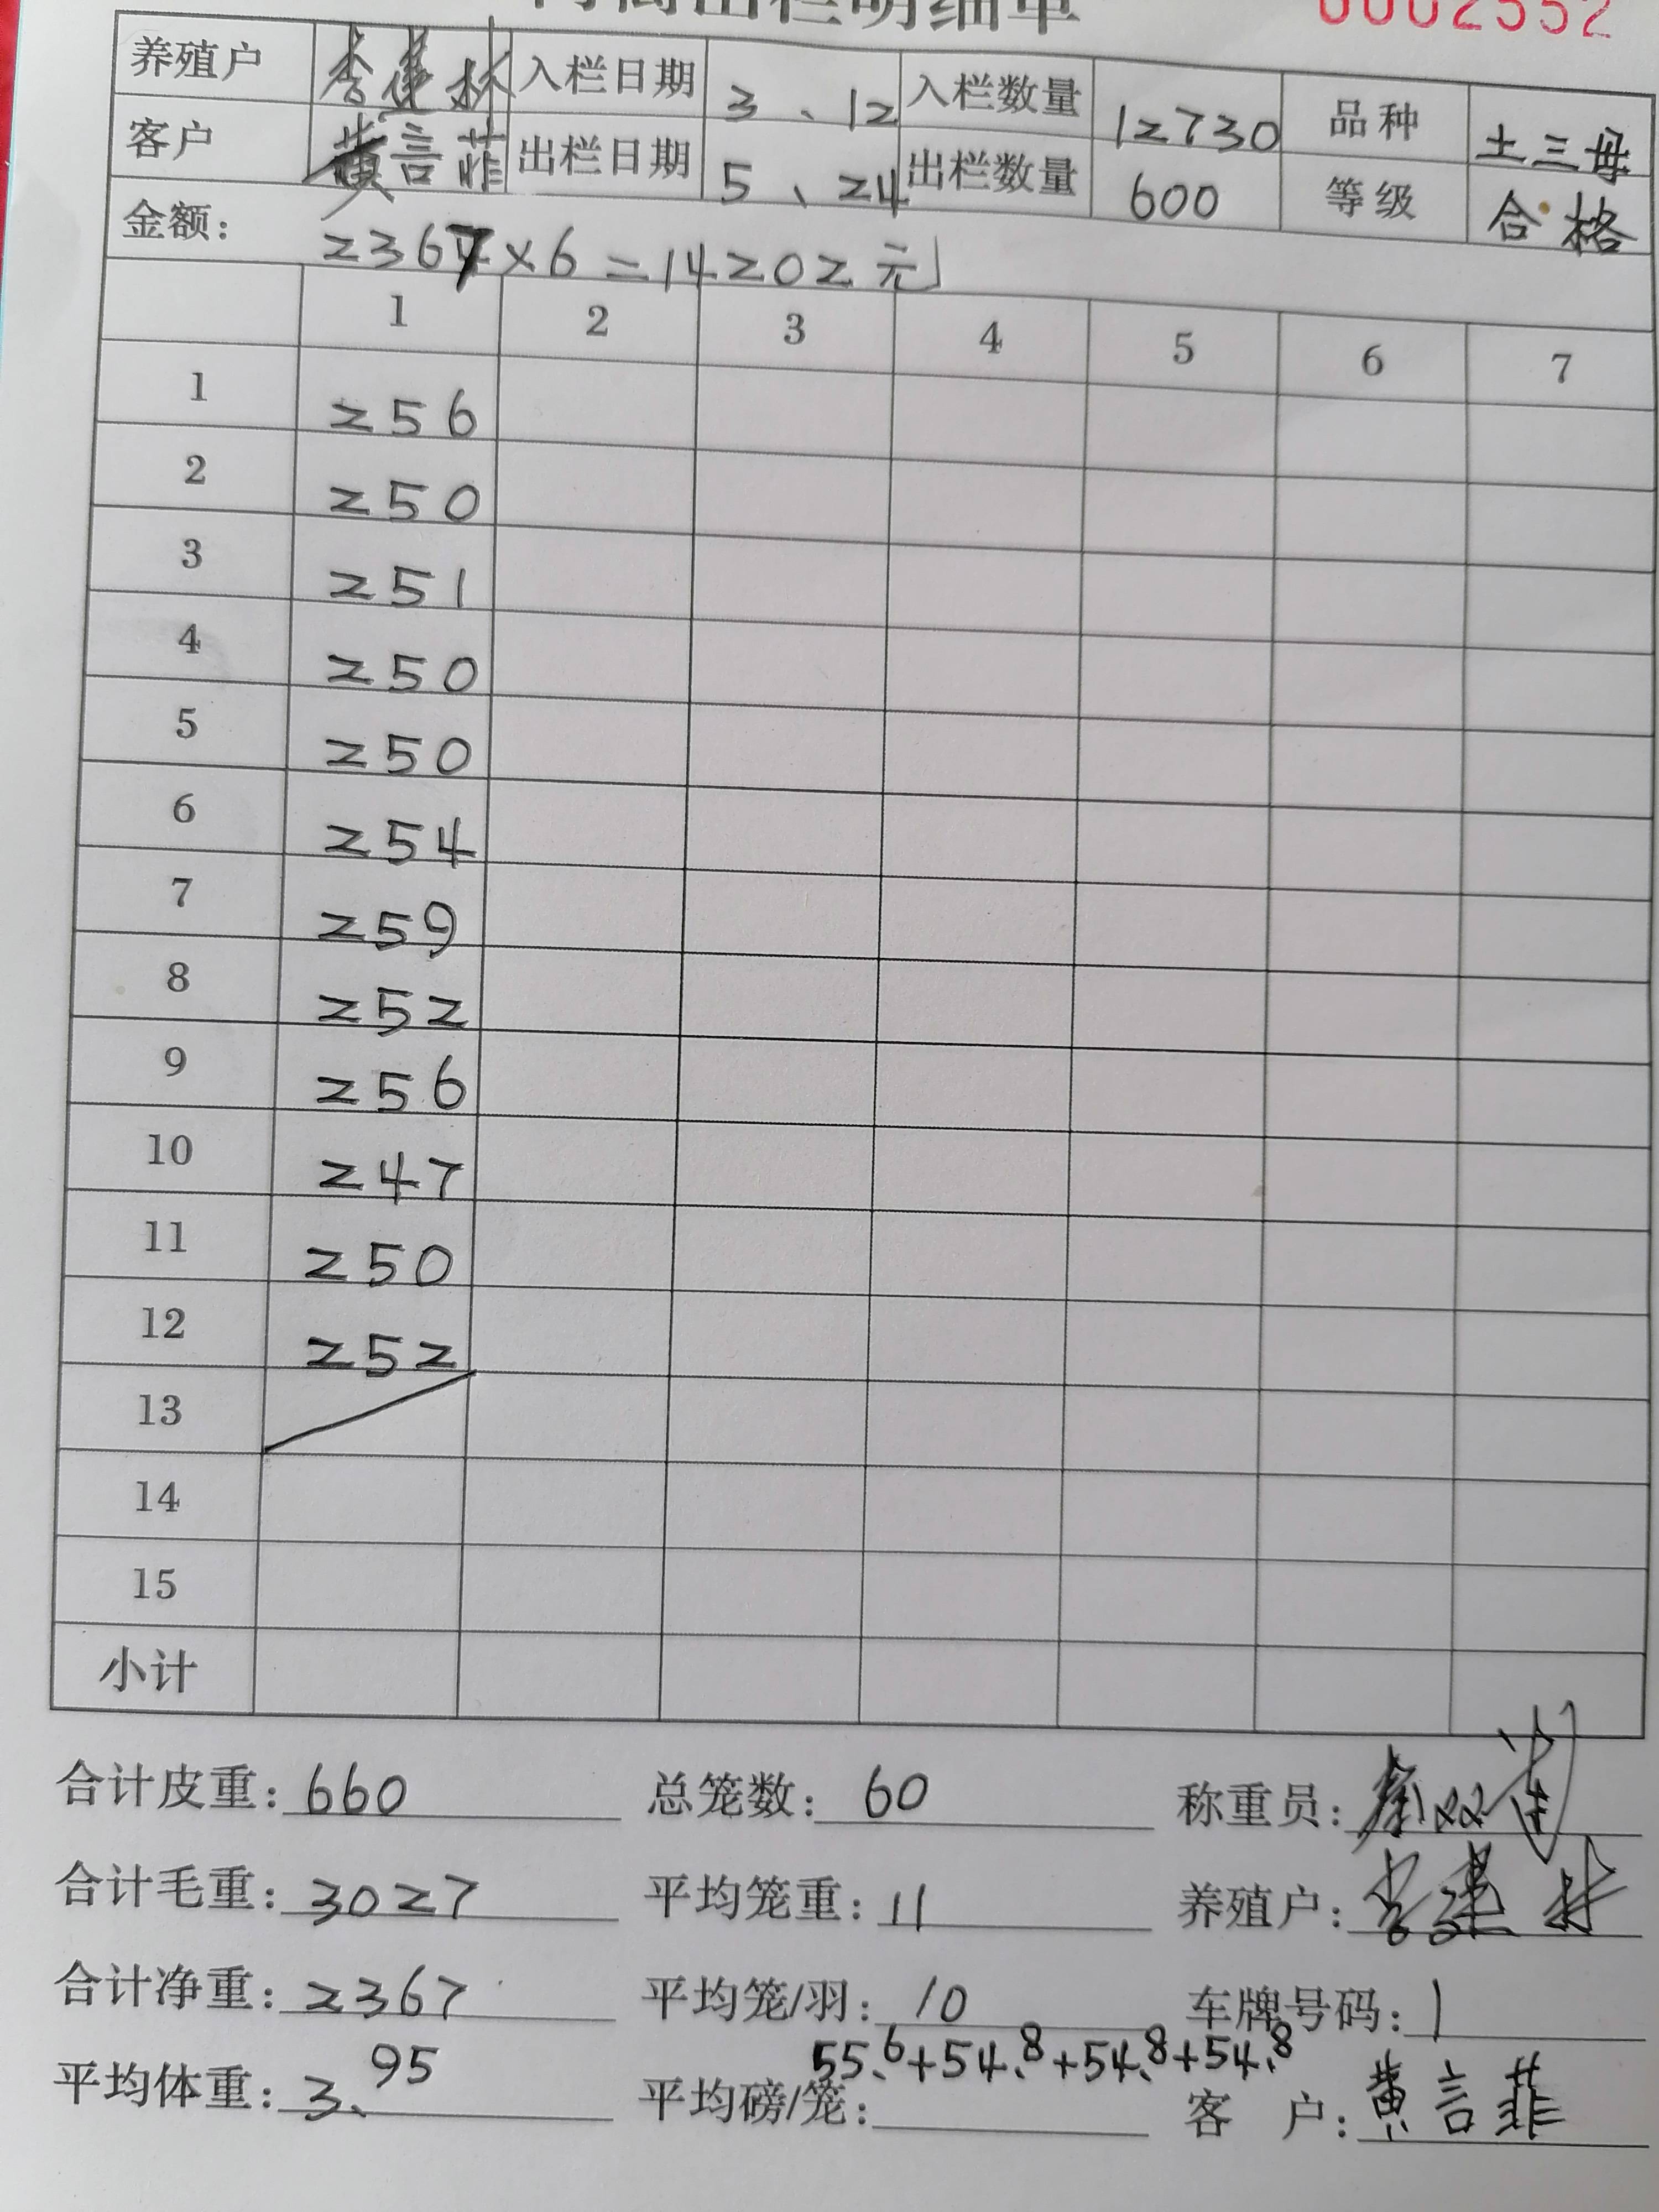 出栏明细单 0002552
养殖户 李建林 入栏日期 3、12 入栏数量 12730 品种 土三母
客户 黄言菲 出栏日期 5、24 出栏数量 600 等级 合格
金额: 2367×6=14202元
1 2 3 4 5 6 7
1 256
2 250
3 251
4 250
5 250
6 254
7 259
8 252
9 256
10 247
11 250
12 252
13
14
15
小计
合计皮重: 660 总笼数: 60 称重员:
合计毛重: 3027 平均笼重: 11 养殖户: 李建林
合计净重: 2367 平均笼/羽: 10 车牌号码: 1
55.6+54.8+54.8+54.8
平均体重: 3.95 平均磅/笼: 客 户: 黄言菲